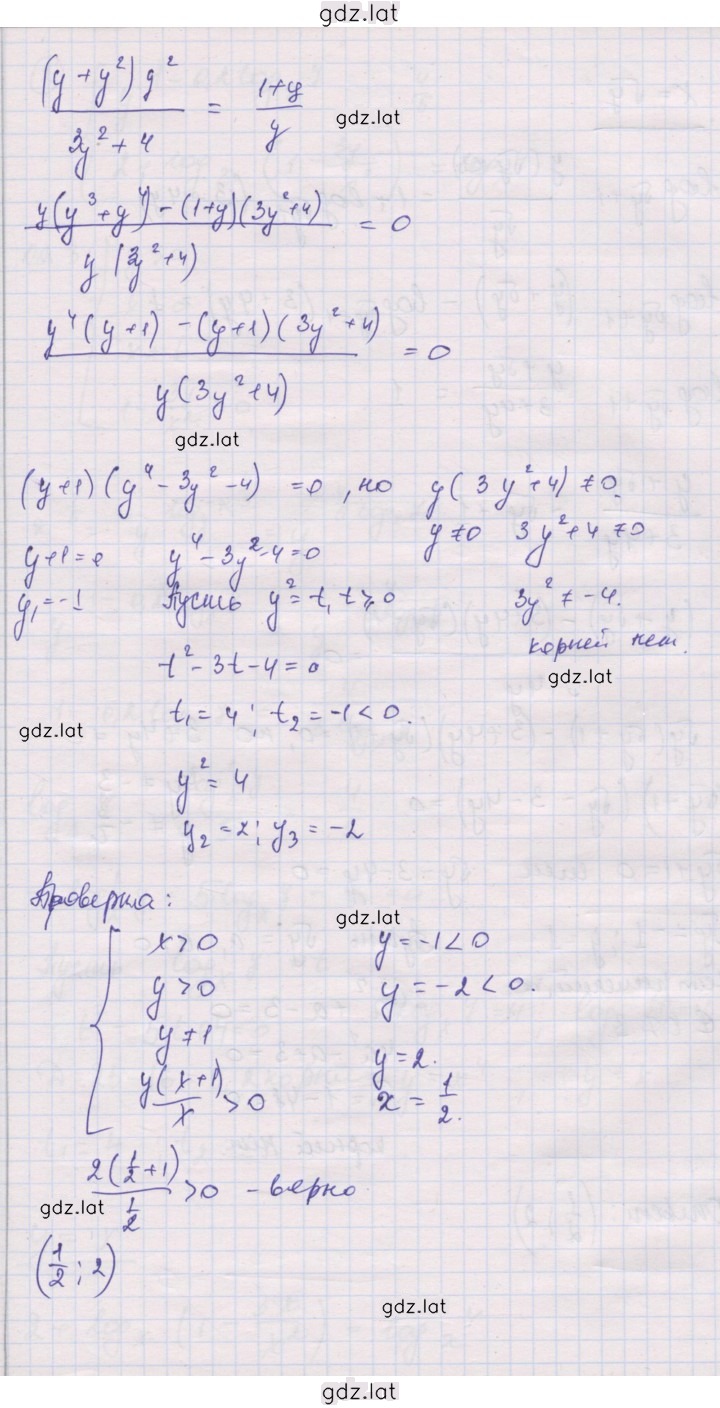 gdz.lat
(y + y²) y² / (3y² + 4) = (1+y) / y
gdz.lat
(y(y³ + y⁴) - (1+y)(3y²+4)) / (y(3y²+4)) = 0
(y⁴(y+1) - (y+1)(3y²+4)) / (y(3y²+4)) = 0
gdz.lat
(y+1)(y⁴ - 3y² - 4) = 0, но y(3y²+4) ≠ 0.
y ≠ 0 3y² + 4 ≠ 0
y+1 = 0 y⁴ - 3y² - 4 = 0
y₁ = -1 Пусть y² = t, t ≥ 0 3y² ≠ -4.
корней нет.
t² - 3t - 4 = 0
gdz.lat
t₁ = 4; t₂ = -1 < 0.
gdz.lat
y² = 4
y₂ = 2; y₃ = -2
Проверка:
gdz.lat
{ x > 0 y = -1 < 0
y > 0 y = -2 < 0.
y ≠ 1
y = 2.
y(x+1) / x > 0 x = 1/2.
2(1/2 + 1) / (1/2) > 0 - верно
gdz.lat
(1/2; 2)
gdz.lat
gdz.lat